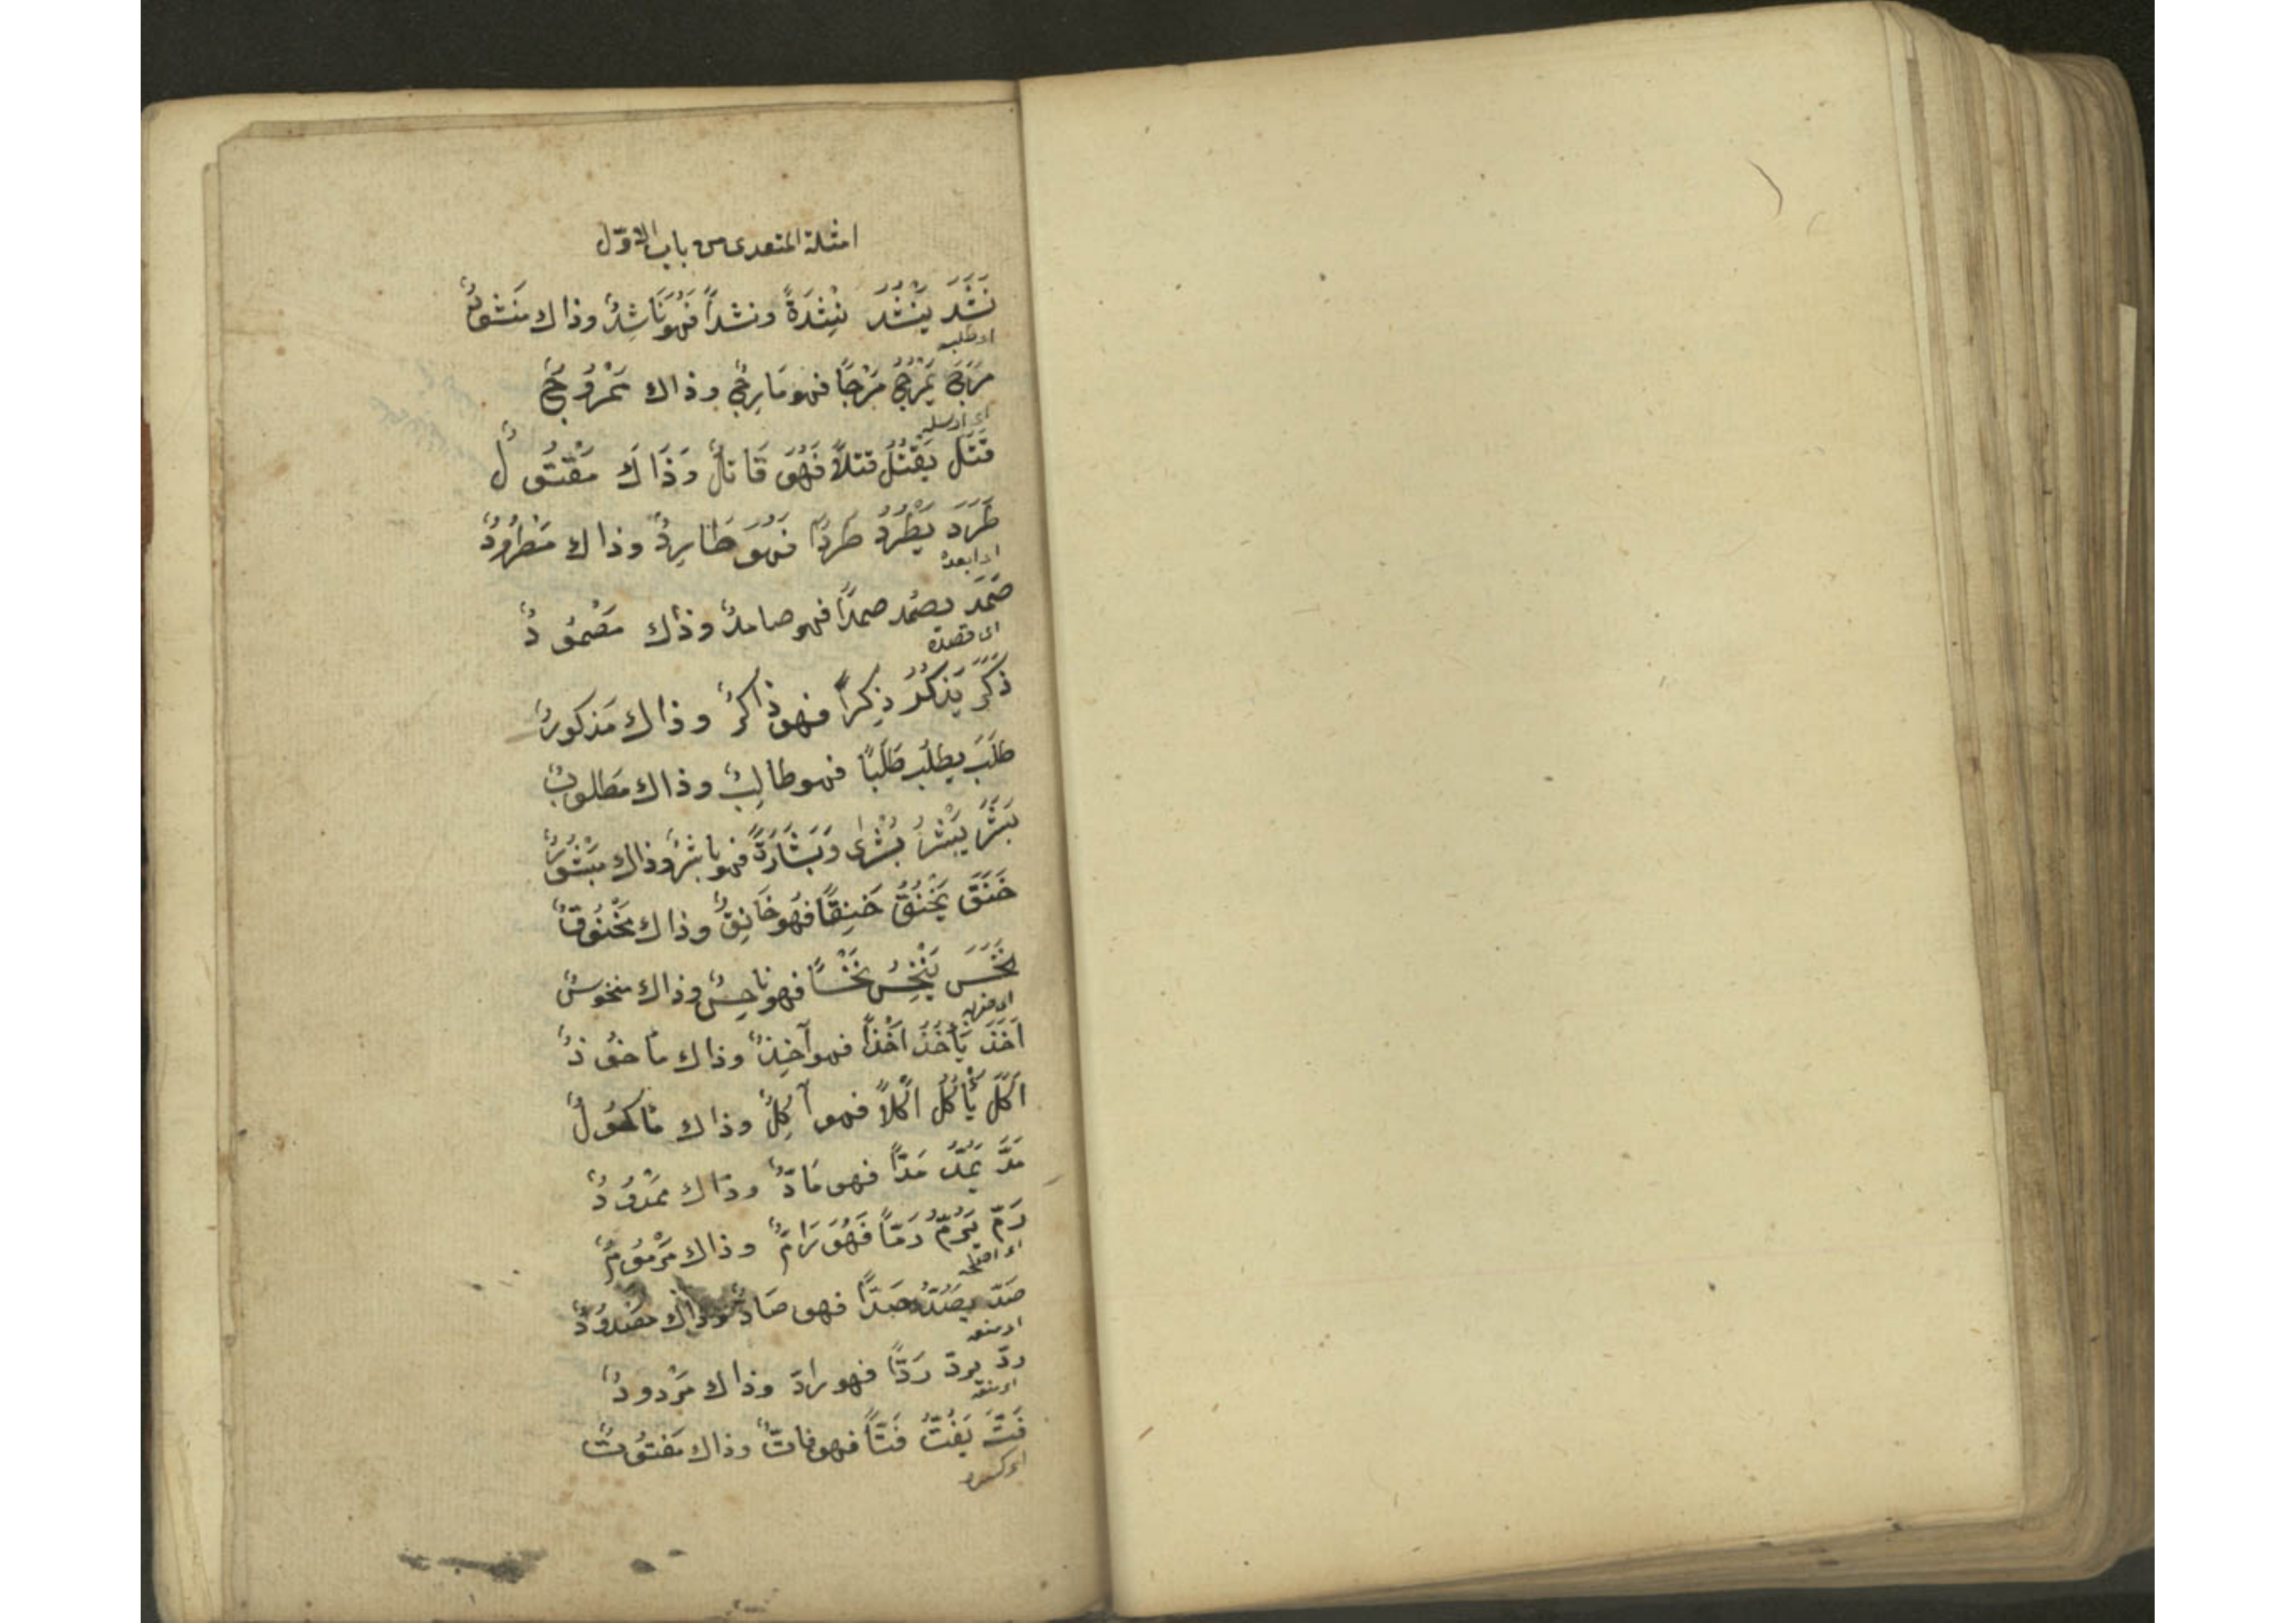 امثلة المتعدى من باب الاوّل
نَشَدَ يَنْشُدُ نِشْدَةً ونشداً فَهُوَ نَاشِدٌ وذاك مَنشودٌ
اى طلبه
مَرَجَ يَمْرُجُ مَرْجًا فهو مَارِجٌ وذاك مَمْرُوجٌ
اى ارسله
قَتَلَ يَقْتُلُ قتلاً فَهُوَ قَاتلٌ وَذَاكَ مَقْتُولٌ
طَرَدَ يَطْرُدُ طَرْدًا فَهُوَ طَارِدٌ وذاك مَطْرُودٌ
اى ابعده
صَمَدَ يصمُد صمدًا فهو صامدٌ وذاك مَصْمُودٌ
اى قصده
ذَكَرَ يَذكُرُ ذِكراً فهو ذاكرٌ وذاك مَذكورٌ
طَلَبَ يطلُب طَلَبًا فهو طالِبٌ وذاك مَطلوبٌ
بَشَرَ يَبْشُرُ بُشْرٰى وَبَشَارَةً فهو باشرٌ وذاك مَبْشُورٌ
خَنَقَ يَخْنُقُ خَنِقًا فَهُو خَانِقٌ وذاك مَخْنُوقٌ
نَخَسَ يَنْخِسُ نَخْسًا فهو ناخِسٌ وذاك منخوسٌ
اَخَذَ يَأخُذُ اَخْذاً فهو آخِذٌ وذاك مَاخُوذٌ
اَكَلَ يَأْكُلُ اَكْلاً فهو آكِلٌ وذاك مَاكُولٌ
مَدَّ يَمُدُّ مَدًّا فهو مَادٌّ وذاك مَمْدُودٌ
رَمَّ يَرُمُّ رَمًّا فَهُوَ رَامٌّ وذاك مَرْمُومٌ
اى اصلحه
صَدَّ يَصُدُّ صَدًّا فهو صَادٌّ وذاك مَصْدُودٌ
اى منعه
ردّ يردّ رَدًّا فهو رادّ وذاك مَرْدودٌ
اى منعه
فَتَّ يَفُتُّ فَتًّا فهو فاتٌّ وذاك مَفتُوتٌ
اى كسره